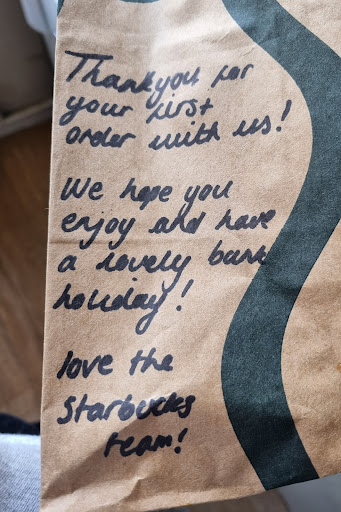 Thankyou for
your first
order with us!
We hope you
enjoy and have
a lovely bank
holiday!
love the
Starbucks
team!